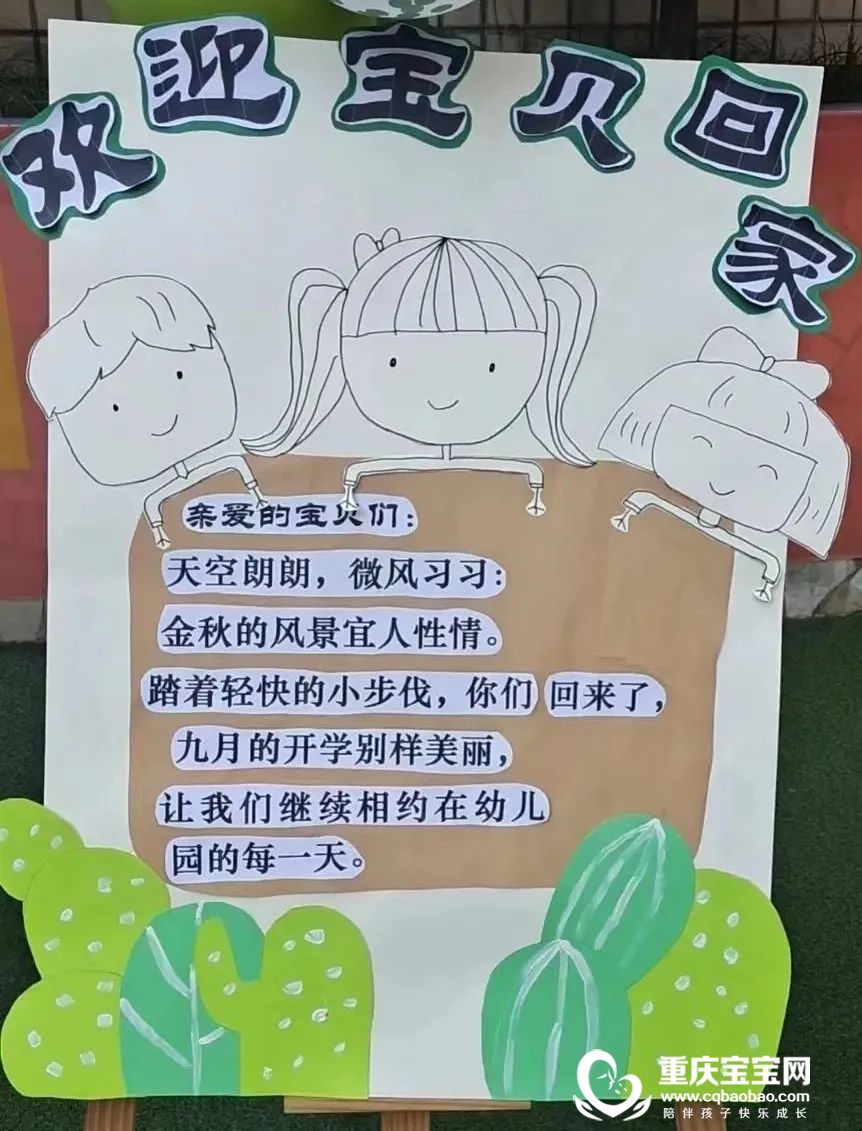 欢迎宝贝回家
亲爱的宝贝们:
天空朗朗，微风习习:
金秋的风景宜人性情。
踏着轻快的小步伐，你们 回来了，
九月的开学别样美丽，
让我们继续相约在幼儿
园的每一天。
重庆宝宝网
www.cqbaobao.com
陪伴孩子快乐成长